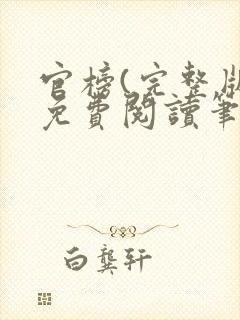 官榜(完整版
免費閱讀筆
白龔軒